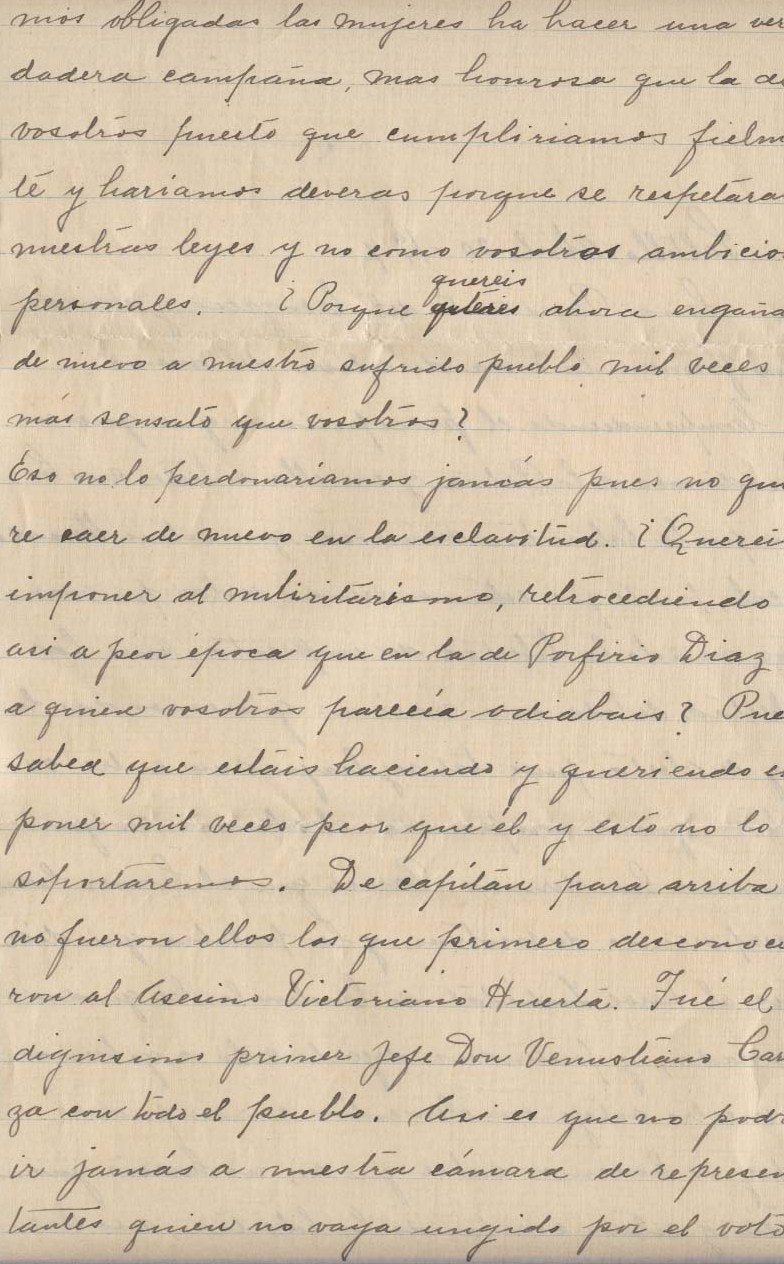 mos obligadas las mujeres ha hacer una ver
dadera campaña, mas honrosa que la de
vosotros puesto que cumpliriamos fielm
te y hariamos deveras porque se respetara
nuestras leyes y no como vosotros ambicio
personales. ¿Porque quereis ahora engaña
de nuevo a nuestro sufrido pueblo mil veces
más sensato que vosotros?
Eso no lo perdonaríamos jamás pues no qui
re caer de nuevo en la esclavitud. ¿Querei
imponer al militarismo, retrocediendo
asi a peor época que en la de Porfirio Diaz
a quien vosotros parecía odiabais? Pue
sabed que estáis haciendo y queriendo
poner mil veces peor que él y esto no lo
soportaremos. De capitán para arriba
no fueron ellos los que primero desconoci
ron al Asesino Victoriano Huerta. Fué el
dignisimo primer Jefe Don Venustiano Car
za con todo el pueblo. Asi es que no podr
ir jamás a nuestra cámara de represen
tantes quien no vaya ungido por el voto